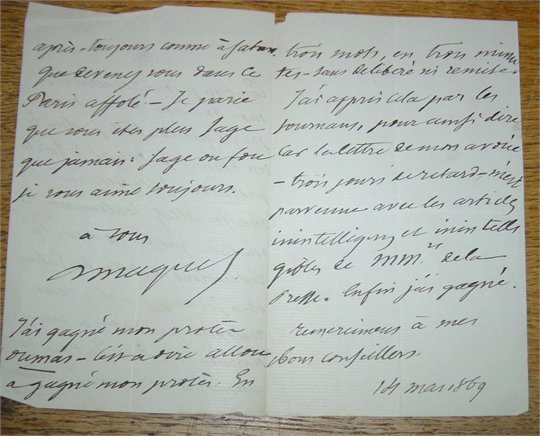 après - toujours comme à Satan.
que devenez vous dans ce
Paris affolé - Je parie
que vous êtes plus sage
que jamais : sage ou fou
je vous aime toujours.
à vous
Amaquet
J'ai gagné mon procès
Dumas - C'est à dire allou
a gagné mon procès. En
trois mots, en trois minu
tes - sans délibéré ni remise.
J'ai appris cela par les
journaux, pour ainsi dire
car la lettre de mon avoué
- trois jours de retard - m'est
parvenue avec les articles
inintelligens et inintelli
gibles de MMrs de la
Presse. Enfin j'ai gagné.
remerciemens à mes
bons conseillers
14 mai 1869